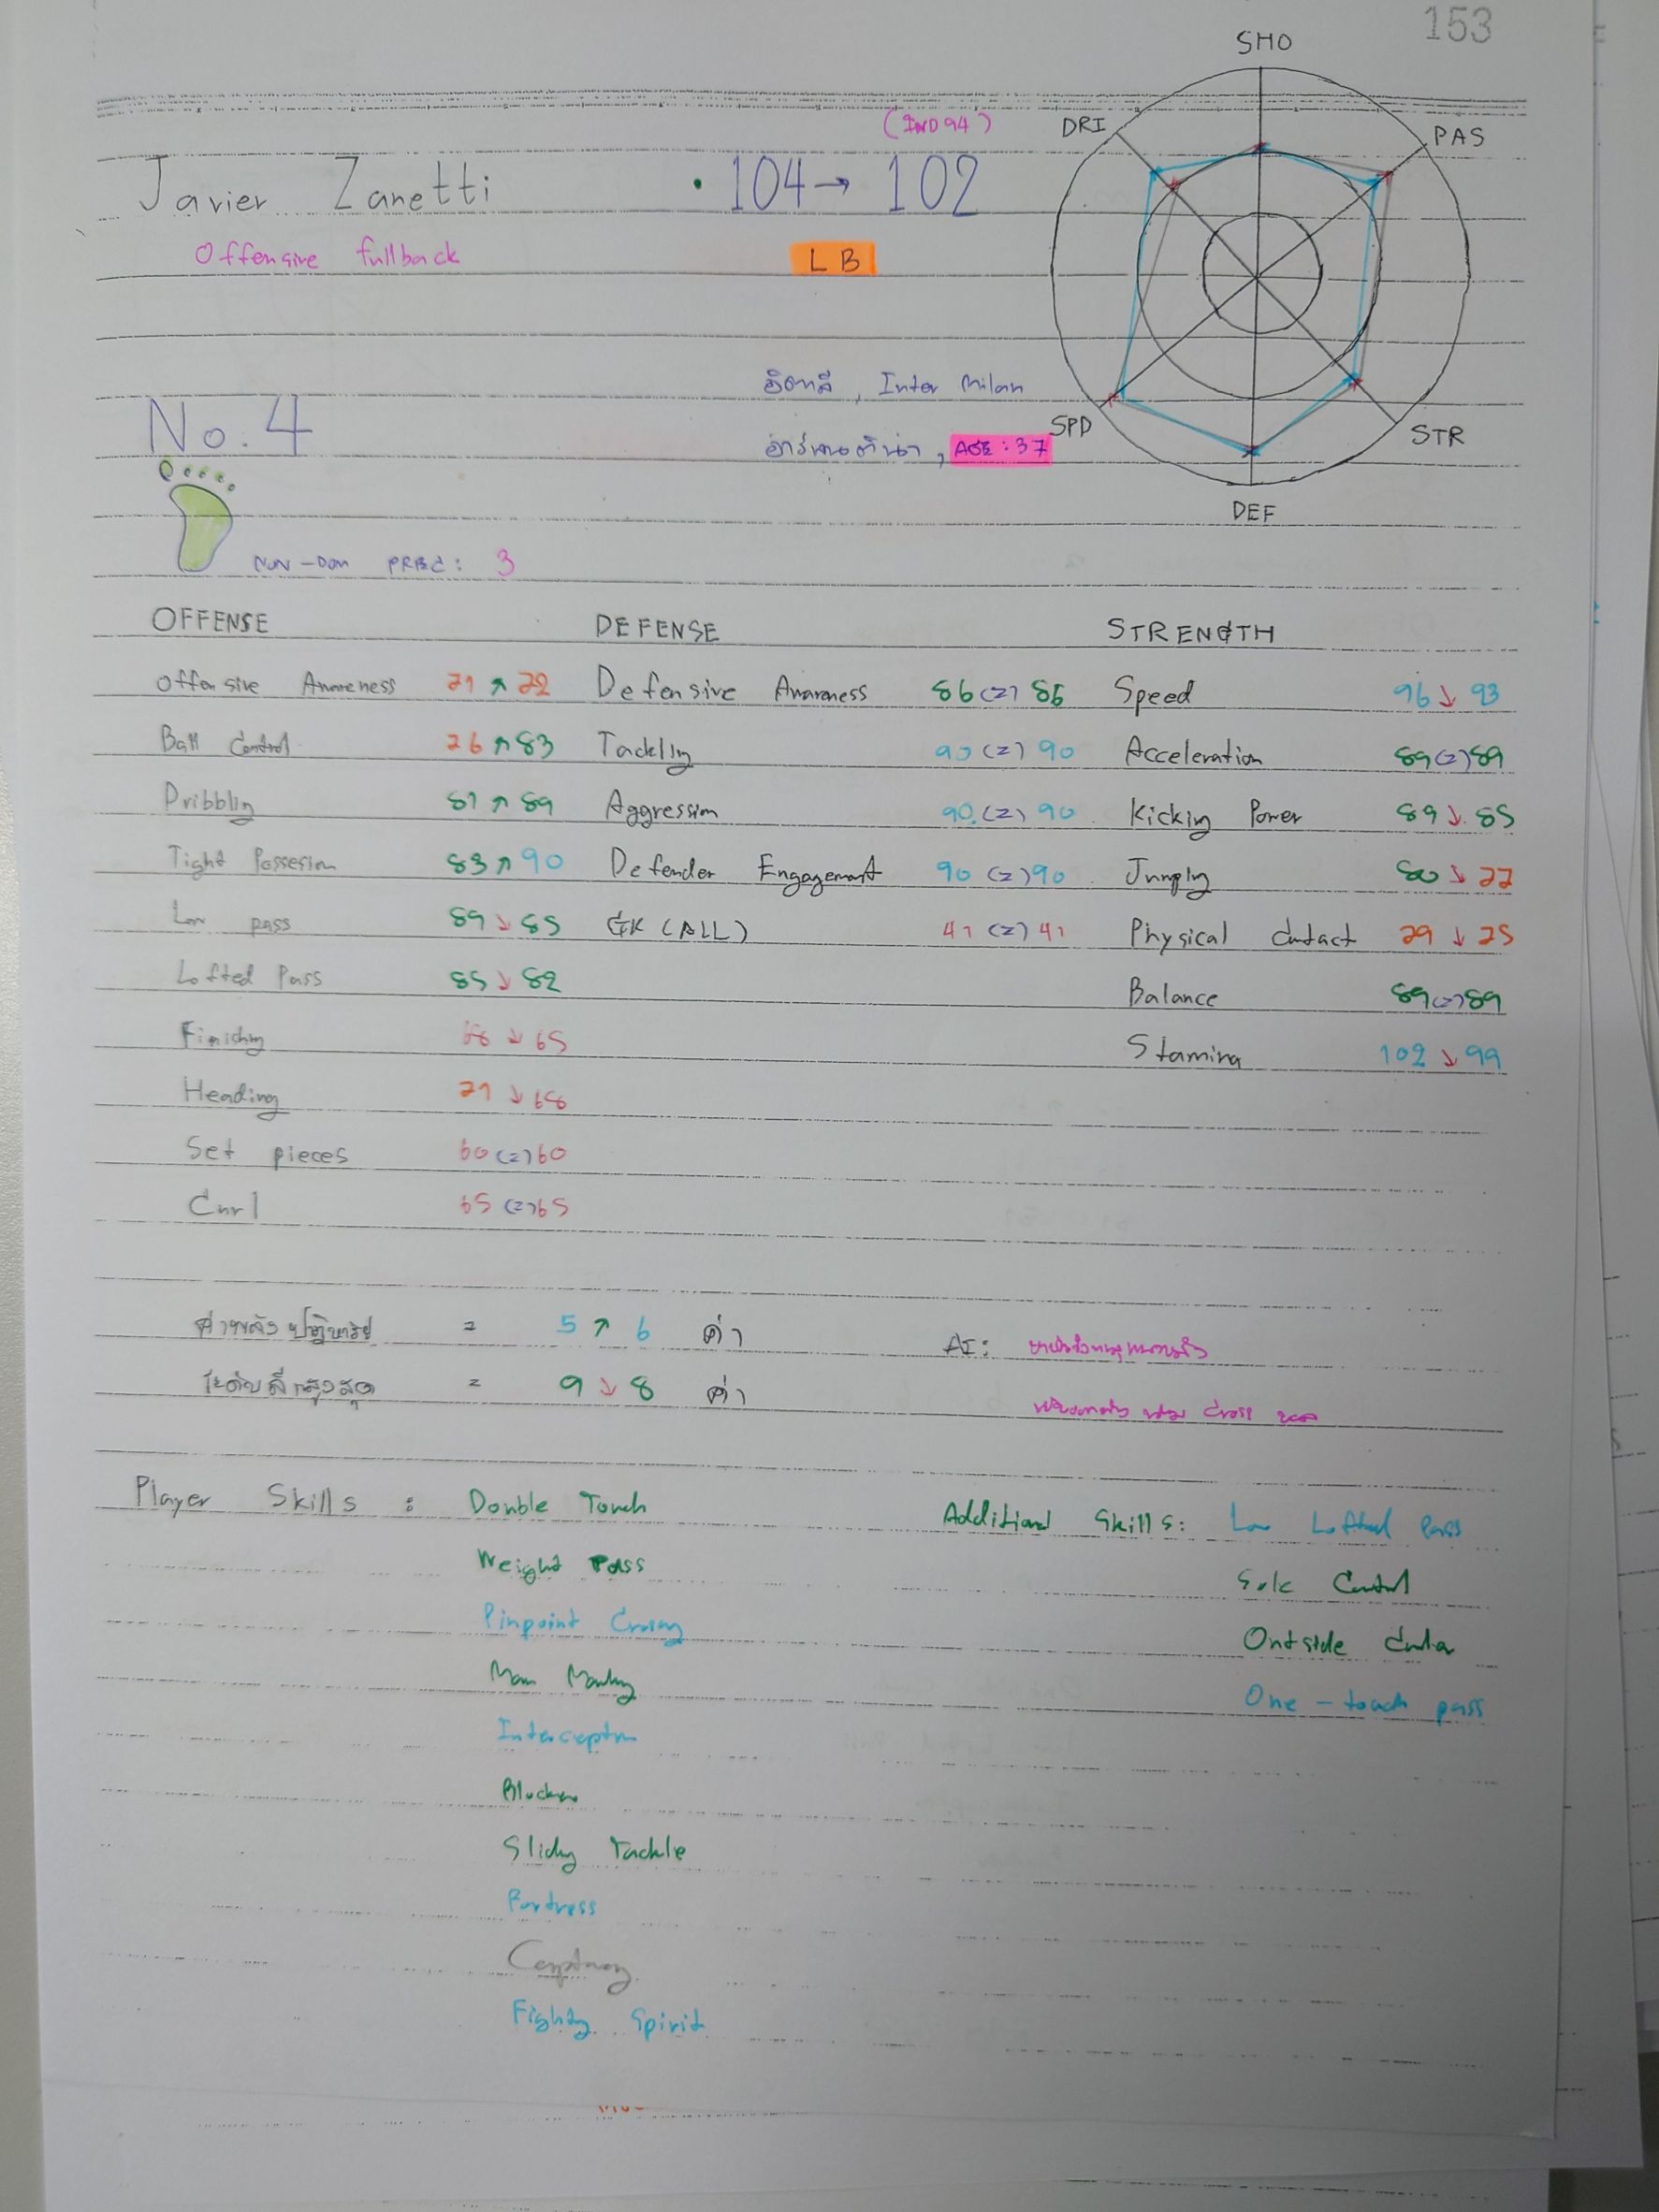 153
SHO
(IND 94)
DRI
PAS
Javier Zanetti • 104 → 102
Offensive fullback
LB
อิตาลี , Inter Milan
No. 4
SPD
STR
อาร์เจนติน่า , AGE : 37
DEF
NON-DOM FREQ : 3
OFFENSE DEFENSE STRENGTH
Offensive Awareness 71 ↗ 72 Defensive Awareness 86 (=) 86 Speed 96 ↘ 93
Ball Control 76 ↗ 83 Tackling 90 (=) 90 Acceleration 89 (=) 89
Dribbling 81 ↗ 89 Aggression 90 (=) 90 Kicking Power 89 ↘ 85
Tight Possesion 83 ↗ 90 Defender Engagement 90 (=) 90 Jumping 80 ↘ 77
Low pass 89 ↘ 85 GK (ALL) 41 (=) 41 Physical Contact 79 ↓ 75
Lofted Pass 85 ↘ 82 Balance 89 (=) 89
Finishing 68 ↘ 65 Stamina 102 ↘ 99
Heading 71 ↘ 68
Set pieces 60 (=) 60
Curl 65 (=) 65
ค่าพลังปฏิหาริย์ = 5 ↗ 6 ค่า AI :
ระดับสีสูงสุด = 9 ↘ 8 ค่า
Cross
Player Skills : Double Touch Additional Skills : Low Lofted Pass
Weight Pass Sole Control
Pinpoint Crossing Outside Curler
Man Marking One-touch pass
Interception
Blocker
Sliding Tackle
Fortress
Captaincy
Fighting Spirit